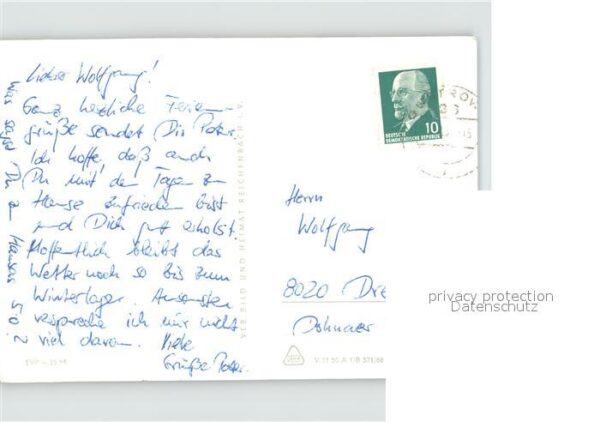 Lieber Wolfgang!
Ganz herzliche Ferien-
grüße sendet Dir Peter.
Ich hoffe, daß auch
Du mit den Tagen zu
Hause zufrieden bist
und Dich gut erholst.
Hoffentlich bleibt das
Wetter noch so bis zum
Winterlager. Ansonsten
verspreche ich mir nicht
viel davon. Viele
Grüße Peter.
Was sagst Du zu
VEB BILD UND HEIMAT REICHENBACH I. V.
DEUTSCHE
DEMOKRATISCHE REPUBLIK
10
Herrn
Wolfgang
8020 Dre
Dohnaer
privacy protection
Datenschutz
V 11 50 A 1/B 571/68